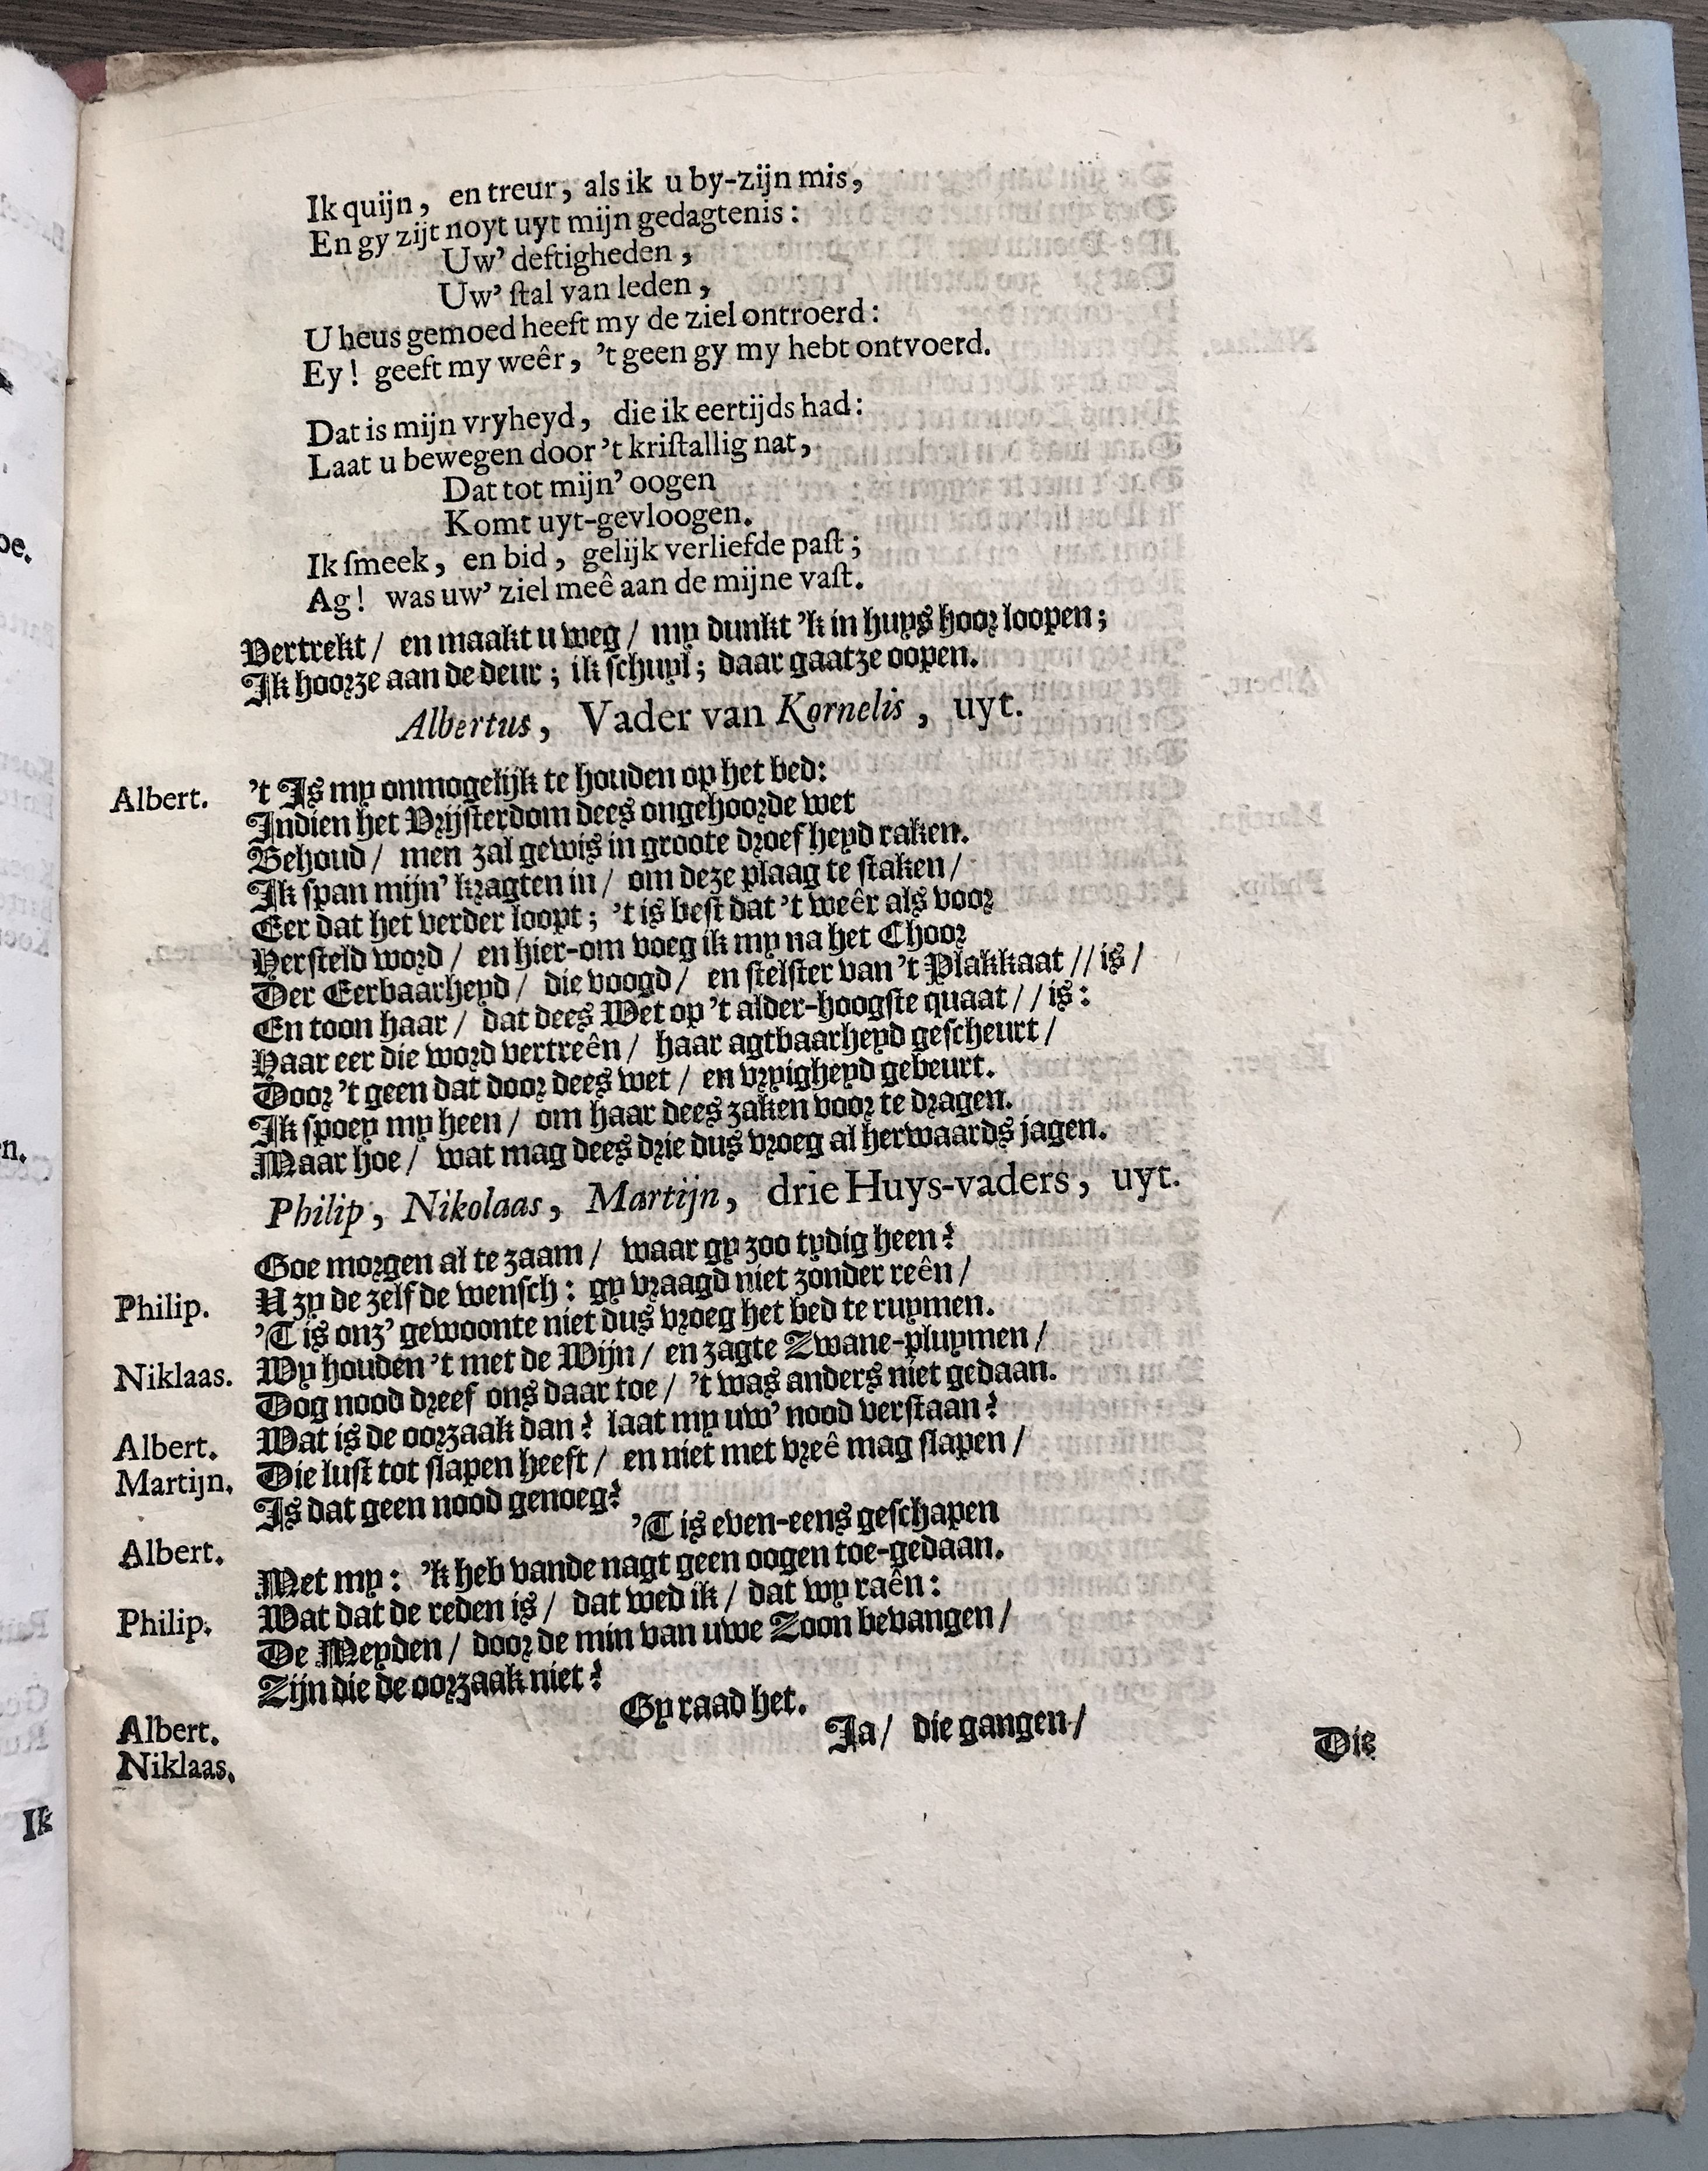 Ik quijn, en treur, als ik u by-zijn mis,
En gy zijt noyt uyt mijn gedagtenis:
Uw' deftigheden,
Uw' ſtal van leden,
U heus gemoed heeft my de ziel ontroerd:
Ey! geeft my weêr, 't geen gy my hebt ontvoerd.
Dat is mijn vryheyd, die ik eertijds had:
Laat u bewegen door 't kriſtallig nat,
Dat tot mijn' oogen
Komt uyt-gevloogen.
Ik ſmeek, en bid, gelijk verliefde paſt;
Ag! was uw' ziel meê aan de mijne vaſt.
Vertrekt / en maakt u weg / my dunkt 'k in huys hoor loopen;
Ik hoorze aan de deur; ik ſchuyl; daar gaatze oopen.
Albertus, Vader van Kornelis, uyt.
Albert. 't Is my onmogelijk te houden op het bed:
Indien het Vrijſterdom dees ongehoorde wet
Behoud / men zal gewis in groote droefheyd raken.
Ik ſpan mijn' kragten in / om deze plaag te ſtaken /
Eer dat het verder loopt; 't is beſt dat 't weêr als voor
Herſteld word / en hier-om voeg ik my na het Choor
Der Eerbaarheyd / die voogd / en ſtelſter van 't Plakkaat // is /
En toon haar / dat dees Wet op 't alder-hoogſte quaat // is:
Haar eer die word vertreên / haar agtbaarheyd geſcheurt /
Door 't geen dat door dees wet / en vryigheyd gebeurt.
Ik ſpoey my heen / om haar dees zaken voor te dragen.
Maar hoe / wat mag dees drie dus vroeg al herwaards jagen.
Philip, Nikolaas, Martijn, drie Huys-vaders, uyt.
Goe morgen al te zaam / waar gy zoo tydig heen?
Philip. U zy de zelfde wenſch: gy vraagd niet zonder reên /
'T is onz' gewoonte niet dus vroeg het bed te ruymen.
Niklaas. Wy houden 't met de Wijn / en zagte Zwane-pluymen /
Dog nood dreef ons daar toe / 't was anders niet gedaan.
Albert. Wat is de oorzaak dan? laat my uw' nood verſtaan?
Martijn. Die luſt tot ſlapen heeft / en niet met vreê mag ſlapen /
Is dat geen nood genoeg?
Albert. 'T is even-eens geſchapen
Met my: 'k heb vande nagt geen oogen toe-gedaan.
Philip. Wat dat de reden is / dat wed ik / dat wy raên:
De Meyden / door de min van uwe Zoon bevangen /
Zijn die de oorzaak niet?
Albert. Gy raad het.
Niklaas. Ja / die gangen /
Die
oe.
n.
Ik